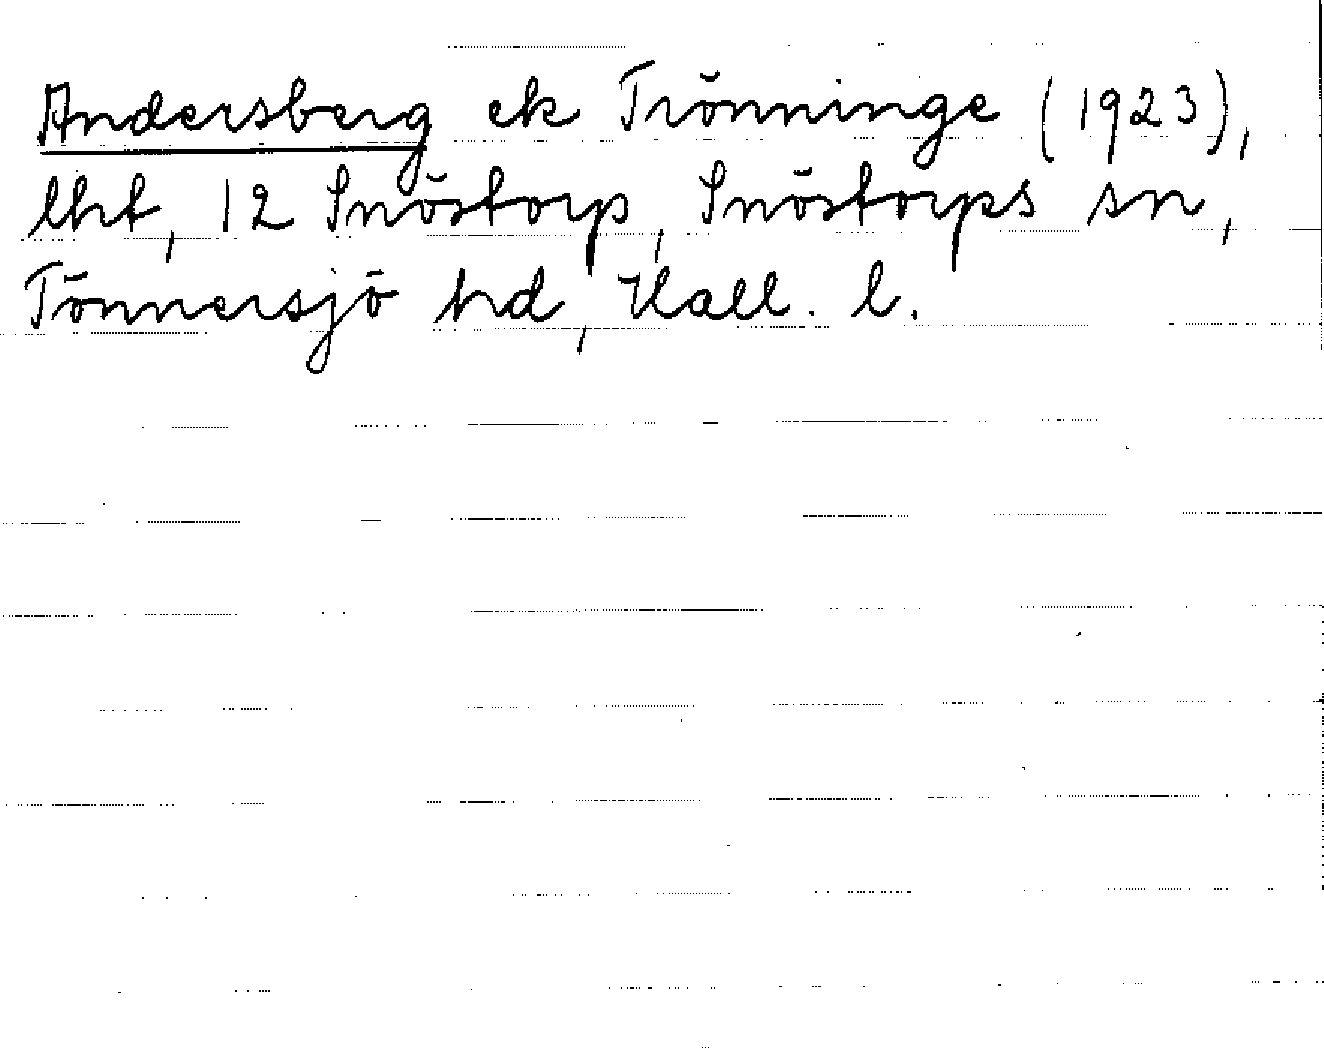 Andersberg ek Trönninge (1923),
lht, 12 Snöstorp, Snöstorps sn,
Tönnersjö hd, Hall. l.